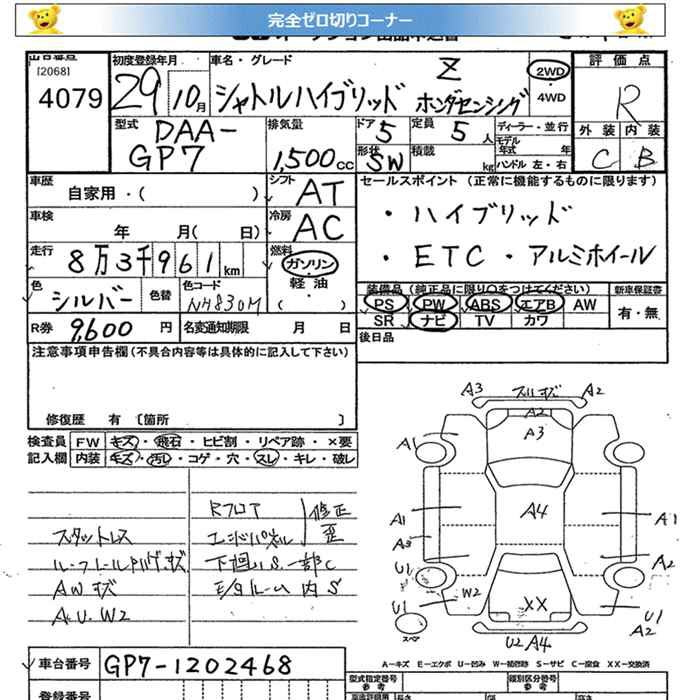 完全ゼロ切りコーナー
[2068]
4079
初度登録年月
29 10月
車名・グレード
Z
シャトルハイブリッド ホンダセンシング
2WD
・
4WD
評価点
R
外装 内装
C B
型式
DAA-
GP7
排気量
1,500cc
ドア 5
定員 5人
ディーラー・並行
モデル年式 年
形状 SW
積載 kg
ハンドル 左・右
車歴
自家用・( )
シフト AT
車検
年 月( 日)
冷房 AC
走行
8万3千961km
燃料
ガソリン
軽油
・( )
色
シルバー
色替
色コード
NH830M
R券 9,600円
名変通知期限 月 日
セールスポイント (正常に機能するものに限ります)
・ハイブリッド
・ETC・アルミホイール
装備品 (純正品に限り○をつけてください)
PS PW ABS エアB AW
SR ナビ TV カワ
新車保証書
有・無
後日品
注意事項申告欄 (不具合内容等は具体的に記入して下さい)
修復歴 有 〔箇所 〕
検査員 FW キズ・飛石・ヒビ割・リペア跡・×要
記入欄 内装 キズ・汚レ・コゲ・穴・スレ・キレ・破レ
スタットレス
AWキズ
A.U.W2
Rフロア
エンドパネル
修正
歪
下回りS.一部C
E/gルーム内S
A3 スリキズ A2
A2
A3
A1
A1
A3
U1
W2
U1
スペア
A4
XX
A1
A2
U1
A2
U2 A4
A-キズ E-エクボ U-凹み W-補修跡 S-サビ C-腐食 XX-交換済
車台番号 GP7-1202468
登録番号
型式指定番号
参考
類別区分番号
参考
長さ
幅
高さ